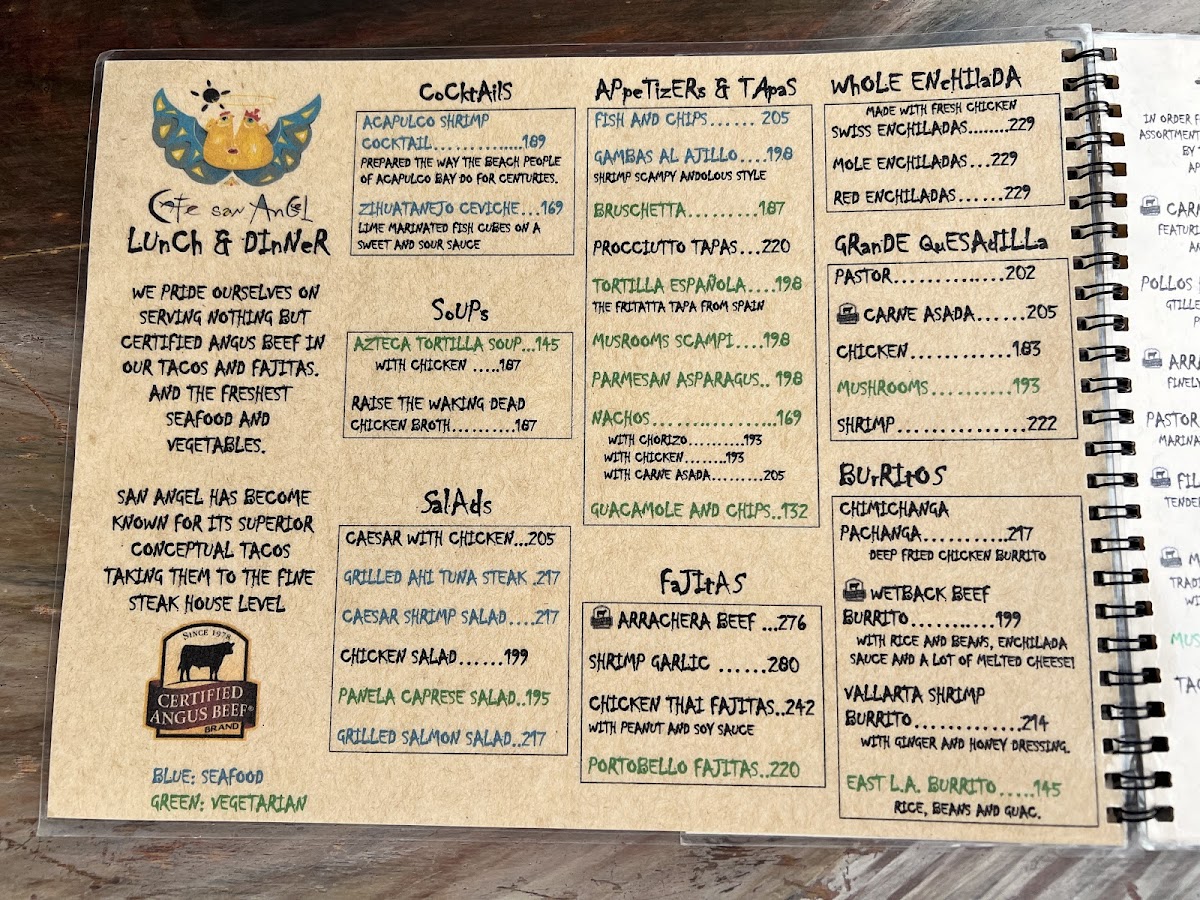 Cafe san AnGEl
LUnCh & DInNeR
WE PRIDE OURSELVES ON
SERVING NOTHING BUT
CERTIFIED ANGUS BEEF IN
OUR TACOS AND FAJITAS.
AND THE FRESHEST
SEAFOOD AND
VEGETABLES.
SAN ANGEL HAS BECOME
KNOWN FOR ITS SUPERIOR
CONCEPTUAL TACOS
TAKING THEM TO THE FINE
STEAK HOUSE LEVEL
SINCE 1978
CERTIFIED
ANGUS BEEF®
BRAND
BLUE: SEAFOOD
GREEN: VEGETARIAN
CoCktAilS
ACAPULCO SHRIMP
COCKTAIL..............189
PREPARED THE WAY THE BEACH PEOPLE
OF ACAPULCO BAY DO FOR CENTURIES.
ZIHUATANEJO CEVICHE...169
LIME MARINATED FISH CUBES ON A
SWEET AND SOUR SAUCE
SoUPs
AZTECA TORTILLA SOUP...145
WITH CHICKEN .....187
RAISE THE WAKING DEAD
CHICKEN BROTH..........187
SalAds
CAESAR WITH CHICKEN...205
GRILLED AHI TUNA STEAK .217
CAESAR SHRIMP SALAD....217
CHICKEN SALAD......199
PANELA CAPRESE SALAD..195
GRILLED SALMON SALAD..217
APpeTizERs & TApaS
FISH AND CHIPS...... 205
GAMBAS AL AJILLO....198
SHRIMP SCAMPY ANDOLOUS STYLE
BRUSCHETTA.........187
PROCCIUTTO TAPAS...220
TORTILLA ESPAÑOLA....198
THE FRITATTA TAPA FROM SPAIN
MUSROOMS SCAMPI....198
PARMESAN ASPARAGUS.. 198
NACHOS..................169
WITH CHORIZO...........193
WITH CHICKEN........193
WITH CARNE ASADA.........205
GUACAMOLE AND CHIPS..132
FaJItAS
ARRACHERA BEEF ...276
SHRIMP GARLIC ......280
CHICKEN THAI FAJITAS..242
WITH PEANUT AND SOY SAUCE
PORTOBELLO FAJITAS..220
WhOLE ENcHILaDA
MADE WITH FRESH CHICKEN
SWISS ENCHILADAS........229
MOLE ENCHILADAS...229
RED ENCHILADAS......229
GRanDE QuESAdILLa
PASTOR..............202
CARNE ASADA......205
CHICKEN............183
MUSHROOMS.........193
SHRIMP...............222
BUrRItOS
CHIMICHANGA
PACHANGA...........217
DEEP FRIED CHICKEN BURRITO
WETBACK BEEF
BURRITO...........199
WITH RICE AND BEANS, ENCHILADA
SAUCE AND A LOT OF MELTED CHEESE!
VALLARTA SHRIMP
BURRITO..............214
WITH GINGER AND HONEY DRESSING.
EAST L.A. BURRITO.....145
RICE, BEANS AND GUAC.
IN ORDER
ASSORTMENT
BY
POLLOS
PASTOR